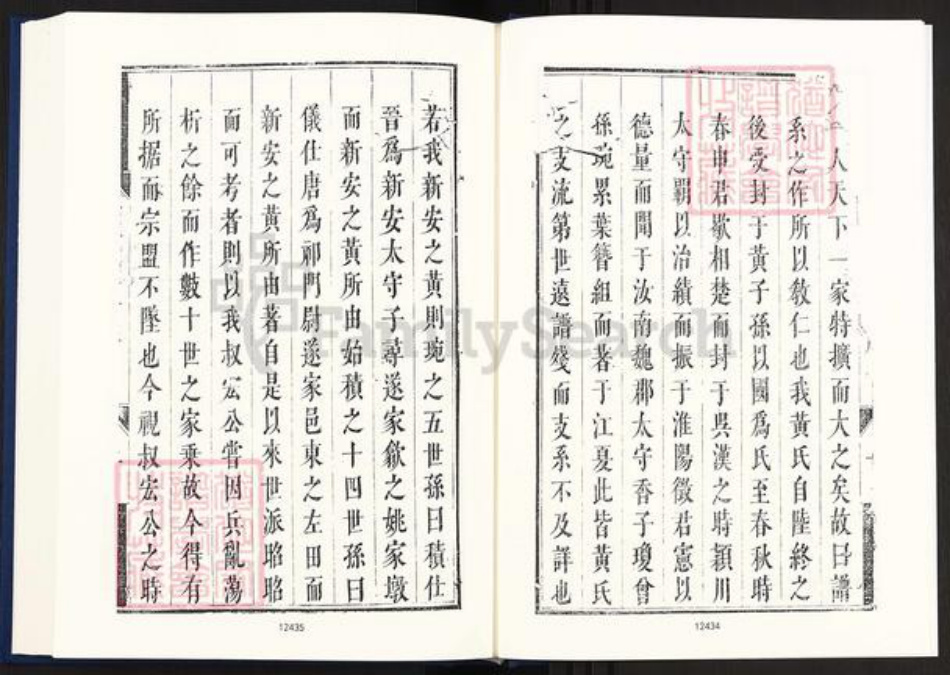 人天下一家特擴而大之矣故曰譜
系之作所以敎仁也我黃氏自陸終之
後受封于黃子孫以國爲氏至春秋時
春申君歇相楚而封于吳漢之時潁川
太守霸以治績而振于淮陽徵君憲以
德量而聞于汝南魏郡太守香子瓊曾
孫琬累葉簪組而著于江夏此皆黃氏
之支流第世遠譜殘而支系不及詳也
12434
若我新安之黃則琬之五世孫曰積仕
晉爲新安太守子尋遂家歙之姚家墩
而新安之黃所由始積之十四世孫曰
儀仕唐爲祁門尉遂家邑東之左田而
新安之黃所由著自是以來世派昭昭
而可考者則以我叔宏公嘗因兵亂蕩
析之餘而作數十世之家乘故今得有
所据而宗盟不墜也今視叔宏公之時
12435
FamilySearch